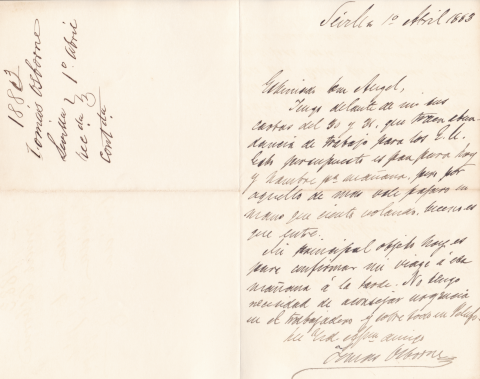 1883
Tomas Osborne
Sevilla 1º Abril
rec. da 3
Contda
Sevilla 1º Abril 1883
Estimado Don Angel,
Tengo delante de mi sus
cartas del 30 y 31, que traen abun-
dancia de trabajo para los
Este presupuesto es pan para hoy
y hambre pª mañana, pero por
aquello de mas vale pajaro en
mano que ciento volando, menos es
que entre.
Mi principal objeto hoy es
para confirmar mi viaje á esa
mañana á la tarde. No tengo
necesidad de aconsejar urgencia
en el trabajadero y sobre todo en
de Vd. affmo amigo
Tomas Osborne